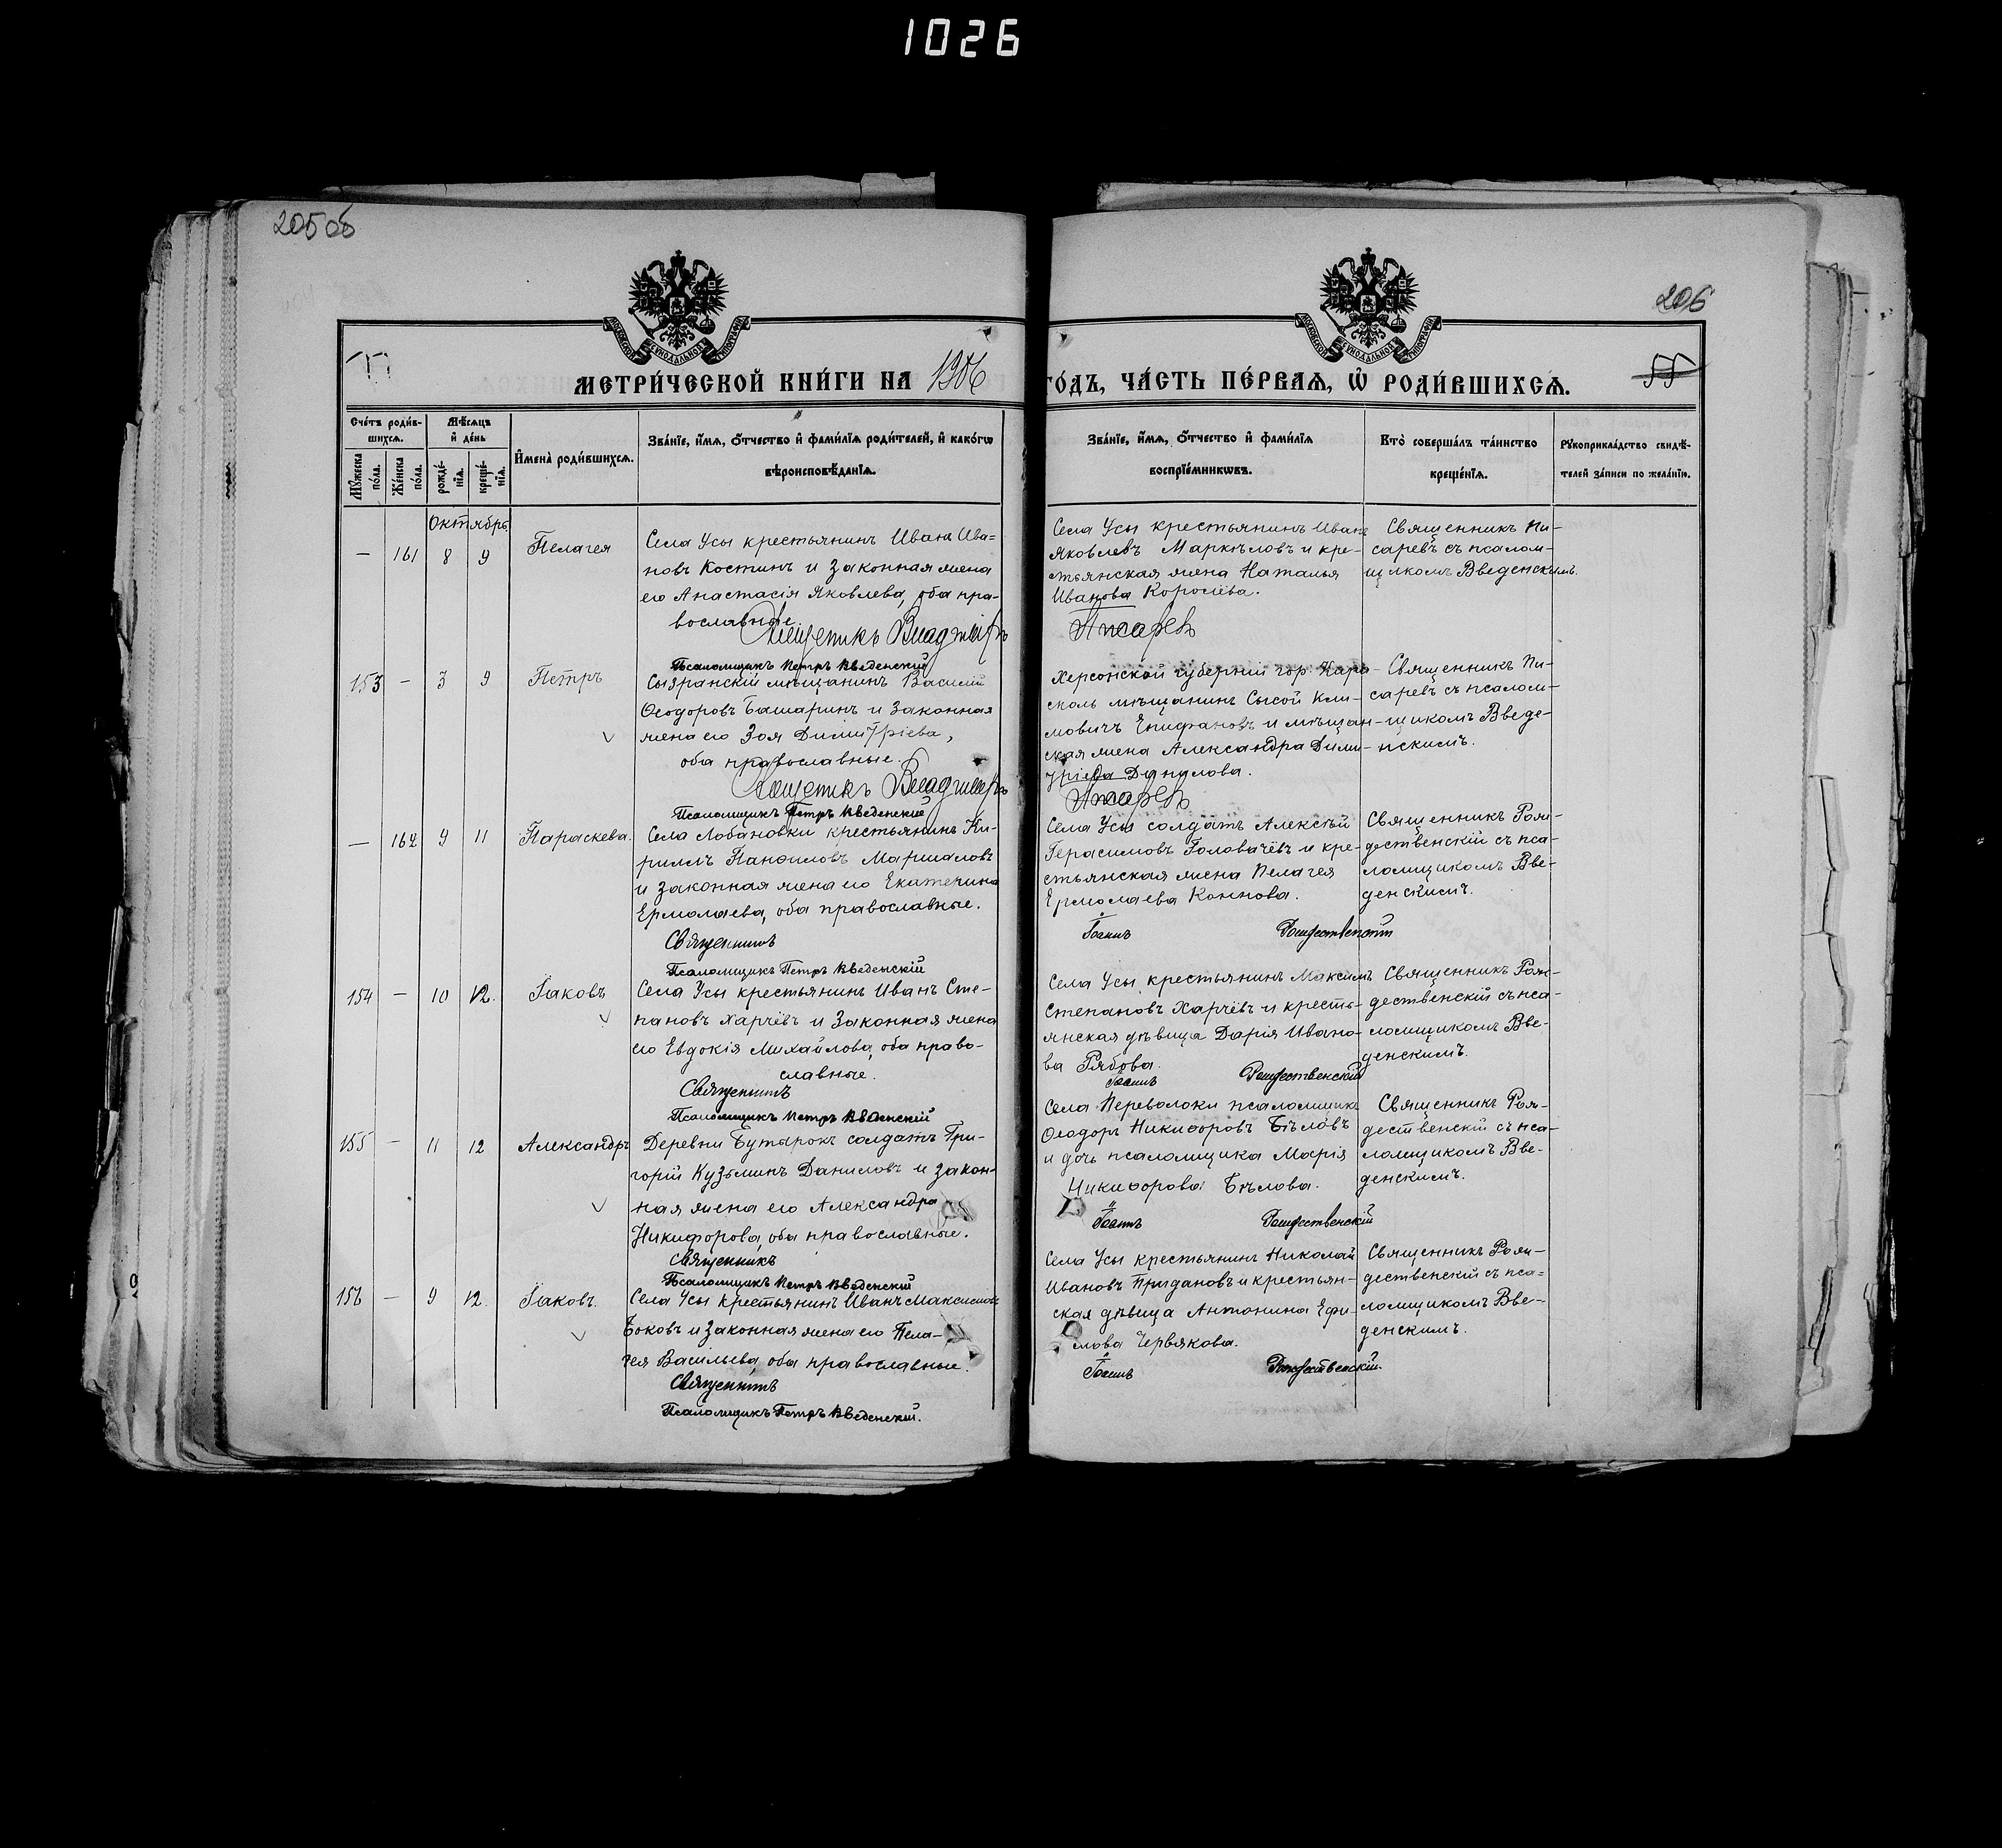 1026
205 об
206
МЕТРИ́ЧЕСКОЙ КНИ́ГИ НА 1906 ГО́ДЪ, ЧА́СТЬ ПЕ́РВАѦ, Ѡ҆ РОДИ́ВШИХСѦ.
55
Сче́тъ роди́в-
шихсѧ.
Мѣ́сѧцъ
и҆ де́нь
Мꙋ́жеска
по́ла.
Же́нска
по́ла.
рожде́-
нїѧ.
креще́-
нїѧ.
И҆мена̀ роди́вшихсѧ.
Зва́нїе, и҆́мѧ, ѻ҆́тчество и҆ фами́лїѧ роди́телей, и҆ како́гѡ
вѣроисповѣ́данїѧ.
Зва́нїе, и҆́мѧ, ѻ҆́тчество и҆ фами́лїѧ
воспрїе́мникѡвъ.
Кто̀ соверша́лъ та́инство
креще́нїѧ.
Рꙋкоприкла́дство свидѣ́-
телей за́писи по жела́нїю.
Октябрь
— 161 8 9 Пелагея
Села Усы крестьянинъ Иванъ Ива=
новъ Костинъ и законная жена
его Анастасія Яковлева, оба пра-
вославные.
Псаломщикъ Петръ Введенскій
Села Усы крестьянинъ Иванъ
Яковлевъ Маркѣловъ и кре-
стьянская жена Наталья
Иванова Королёва.
Писаревъ
Священникъ Пи-
саревъ съ псалом-
щикомъ Введенскимъ.
153 — 3 9 Петръ
Сызранскій мѣщанинъ Василій
Ѳеодоровъ Башаринъ и законная
жена его Зоя Димитріева,
оба православные.
Псаломщикъ Петръ Введенскій
Херсонской губерніи гор.
мѣщанинъ Сысой Кли-
мовичъ Епифановъ и мѣщан-
ская жена Александра Дими-
тріева Данилова.
Писаревъ
Священникъ Пи-
саревъ съ псалом-
щикомъ Введе-
нскимъ.
— 162 9 11 Параскева.
Села Лобановки крестьянинъ Ки-
риллъ Панфиловъ Маршаловъ
и законная жена его Екатерина
Ермолаева, оба православные.
Священникъ
Псаломщикъ Петръ Введенскій
Села Усы солдатъ Алексѣй
Герасимовъ Головачёвъ и кре-
стьянская жена Пелагея
Ермолаева Коннова.
Іоаннъ Рождественскій
Священникъ Рож-
дественскій съ пса-
ломщикомъ Вве-
денскимъ.
154 — 10 12. Іаковъ
Села Усы крестьянинъ Иванъ Сте-
пановъ Харчёвъ и законная жена
его Евдокія Михайлова, оба право-
славные.
Священникъ
Псаломщикъ Петръ Введенскій
Села Усы крестьянинъ Максимъ
Степановъ Харчёвъ и кресть-
янская дѣвица Дарія Ивано-
ва Рябова.
Іоаннъ Рождественскій
Священникъ Рож-
дественскій съ пса-
ломщикомъ Вве-
денскимъ.
155 — 11 12 Александръ
Деревни Бутырокъ солдатъ Гри-
горій Кузьминъ Даниловъ и закон-
ная жена его Александра
Никифорова, оба православные.
Священникъ
Псаломщикъ Петръ Введенскій
Села Переволоки псаломщикъ
Ѳеодоръ Никифоровъ Бѣловъ
и дочь псаломщика Марія
Никифорова Бѣлова.
Іоаннъ Рождественскій
Священникъ Рож-
дественскій съ пса-
ломщикомъ Вве-
денскимъ.
156 — 9 12. Іаковъ.
Села Усы крестьянинъ Иванъ Максимовъ
Боковъ и законная жена его Пела-
гея Васильева, оба православные.
Священникъ
Псаломщикъ Петръ Введенскій.
Села Усы крестьянинъ Николай
Ивановъ Придановъ и крестьян-
ская дѣвица Антонина Ефи-
мова Червякова.
Іоаннъ Рождественскій.
Священникъ Рож-
дественскій съ пса=
ломщикомъ Вве-
денскимъ.